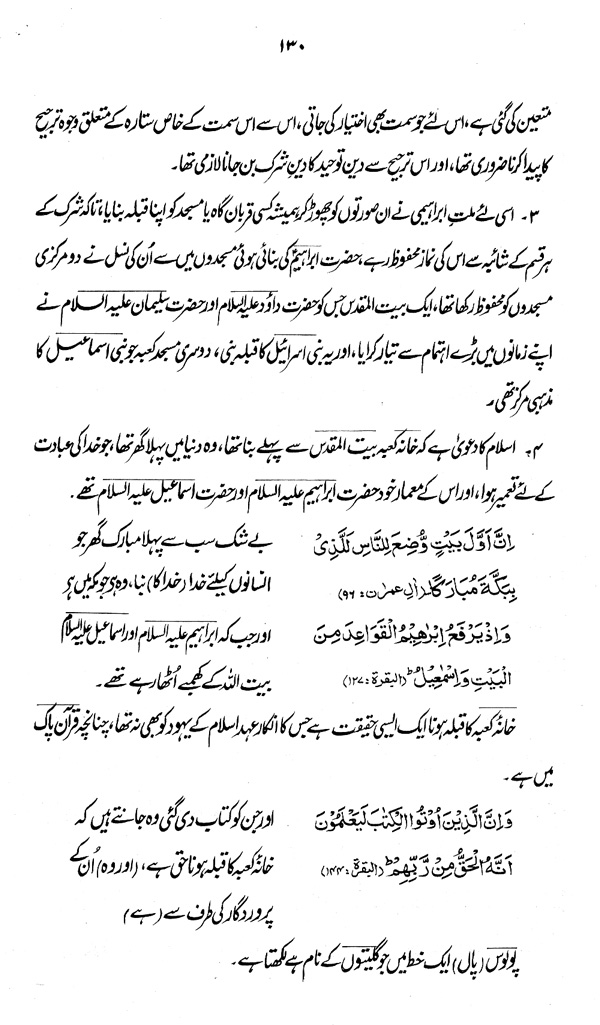 ۱۳۰
متعین کی گئی ہے، اس لئے جو سمت بھی اختیار کی جاتی، اس سے اس سمت کے خاص ستارہ کے متعلق وجوہ ترجیح
کا پیدا کرنا ضروری تھا، اور اس ترجیح سے دین توحید کا دینِ شرک بن جانا لازمی تھا۔
۳۔ اسی لئے ملتِ ابراہیمی نے ان صورتوں کو چھوڑ کر ہمیشہ کسی قربان گاہ یا مسجد کو اپنا قبلہ بنایا، تاکہ شرک کے
ہر قسم کے شائبہ سے اس کی نماز محفوظ رہے، حضرت ابراہیمؑ کی بنائی ہوئی مسجدوں میں سے اُن کی نسل نے دو مرکزی
مسجدوں کو محفوظ رکھا تھا، ایک بیت المقدس جس کو حضرت داؤد علیہ السلام اور حضرت سلیمان علیہ السلام نے
اپنے زمانوں میں بڑے اہتمام سے تیار کرایا، اور یہ بنی اسرائیل کا قبلہ بنی، دوسری مسجد کعبہ جو بنی اسماعیل کا
مذہبی مرکز تھی۔
۴۔ اسلام کا دعویٰ ہے کہ خانہ کعبہ بیت المقدس سے پہلے بنا تھا، وہ دنیا میں پہلا گھر تھا، جو خدا کی عبادت
کے لئے تعمیر ہوا، اور اس کے معمار خود حضرت ابراہیم علیہ السلام اور حضرت اسماعیل علیہ السلام تھے۔
اِنَّ اَوَّلَ بَيْتٍ وُّضِعَ لِلنَّاسِ لَلَّذِىْ بے شک سب سے پہلا مبارک گھر جو
بِبَكَّةَ مُبَارَكًا (اٰل عمران: ۹۶) انسانوں کیلئے خدا (خدا کا) بنا، وہ ہی جو مکہ میں ہے
وَاِذْ يَرْفَعُ اِبْرٰهِيْمُ الْقَوَاعِدَ مِنَ اور جب کہ ابراہیم علیہ السلام اور اسماعیل علیہ السلام
الْبَيْتِ وَاِسْمٰعِيْلُ ؕ (البقرة: ۱۲۷) بیت اللہ کے کھمبے اُٹھا رہے تھے۔
خانۂ کعبہ کا قبلہ ہونا ایک ایسی حقیقت ہے جس کا انکار عہد اسلام کے یہود کو بھی نہ تھا، چنانچہ قرآن پاک
میں ہے۔
وَاِنَّ الَّذِيْنَ اُوْتُوا الْكِتٰبَ لَيَعْلَمُوْنَ اور جن کو کتاب دی گئی وہ جانتے ہیں کہ
اَنَّهُ الْحَقُّ مِنْ رَّبِّهِمْ ؕ (البقرة: ۱۴۴) خانہ کعبہ کا قبلہ ہونا حق ہے، (اور وہ) اُن کے
پروردگار کی طرف سے (ہے)
پولوس (پال) ایک خط میں جو گلیتیوں کے نام ہے لکھتا ہے۔